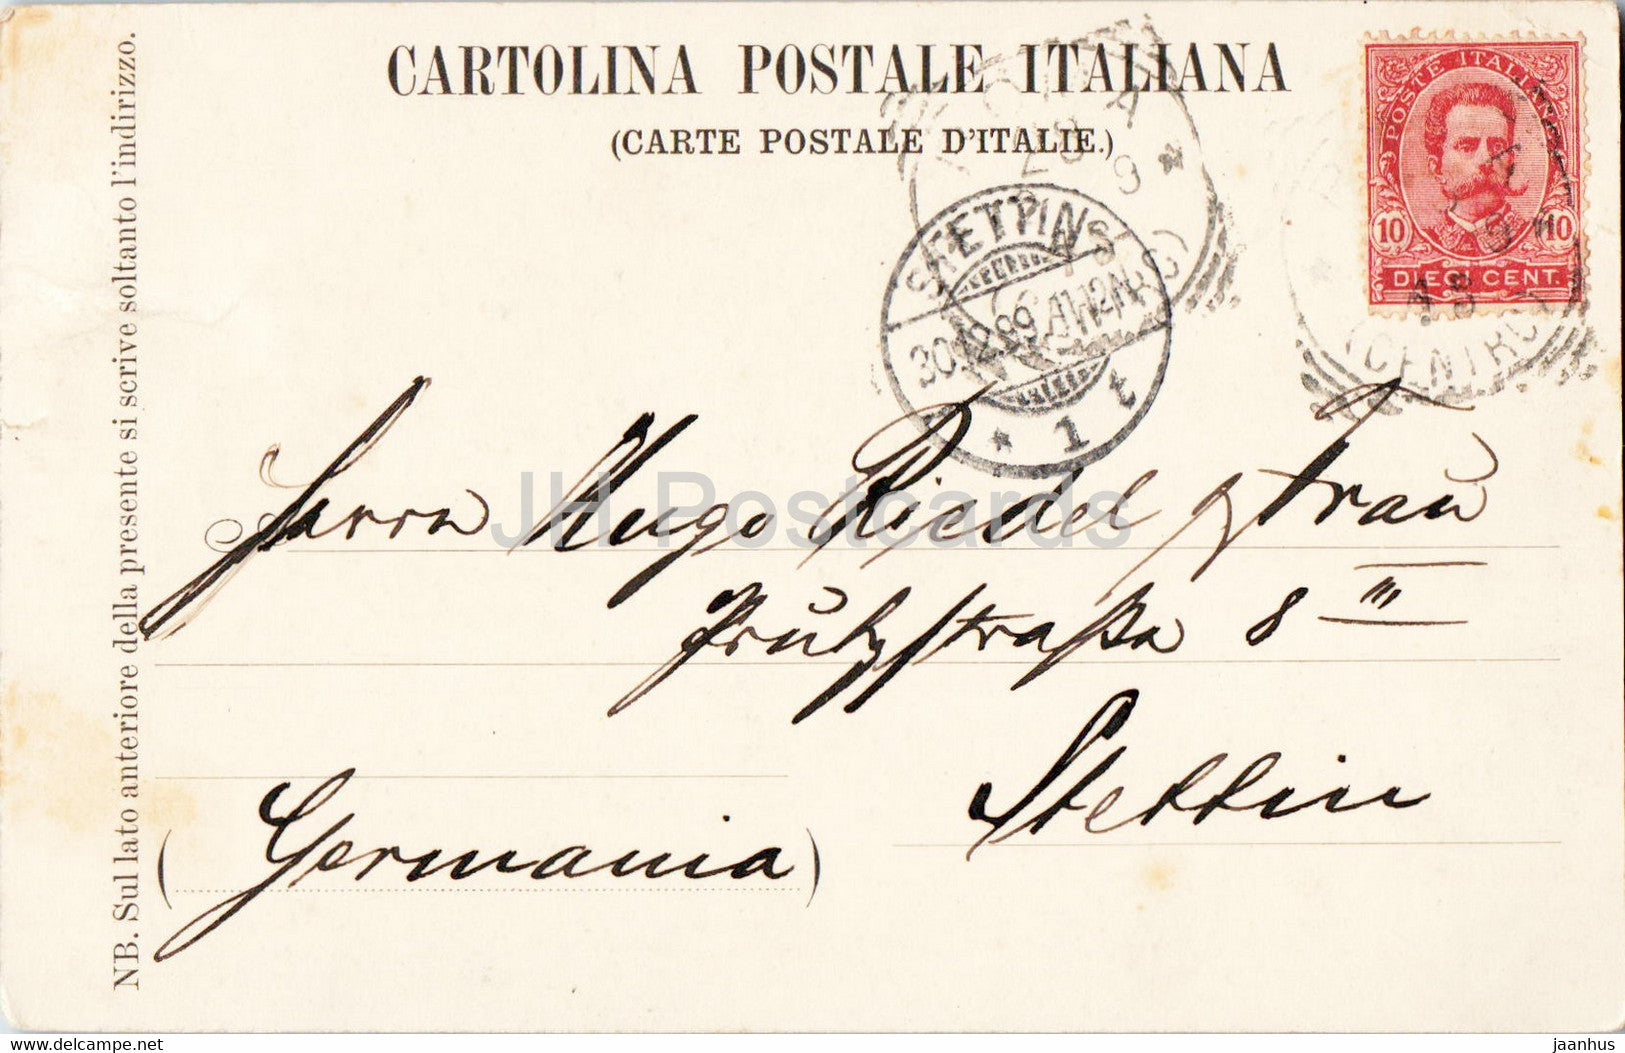 CARTOLINA POSTALE ITALIANA
(CARTE POSTALE D'ITALIE.)
POSTE ITALIANE
10 10
DIECI CENT.
CENTRO
STETTIN
30.12.99. 
* 1 t
Herrn Hugo Riedel & Frau
Prützstraße 8 III
Stettin
(Germania)
NB. Sul lato anteriore della presente si scrive soltanto l'indirizzo.
JH Postcards
delcampe.net
jaanhus